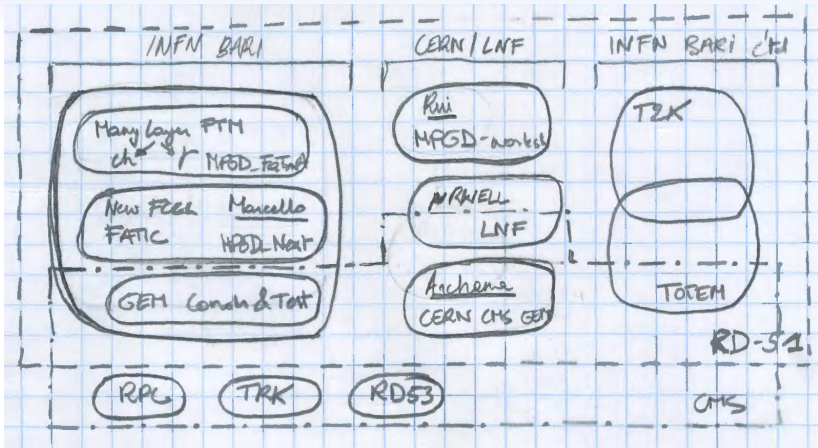 INFN BARI
CERN/LNF
INFN BARI
Many layer FTM
MPGD_FATIMA
New FEEL Marcello
FATIC MPGD_Next
GEM Constr & Test
Rui
MPGD-worksh
μRWELL
LNF
Archana
CERN CMS GEM
T2K
TOTEM
RD-51
RPC
TRK
RD53
CMS